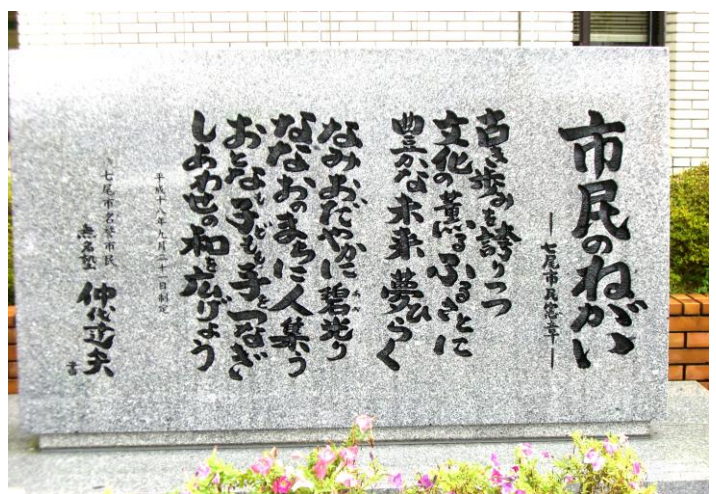 市民のねがい
―七尾市民憲章―
古き歩みを誇りつつ
文化の薫るふるさとに
豊かな未来 夢ひらく
なみおだやかに碧光り
ななおのまちに人集う
おとなも子どもも手をつなぎ
しあわせの和を広げよう
平成十八年九月二十一日制定
七尾市名誉市民
無名塾 仲代達矢 書